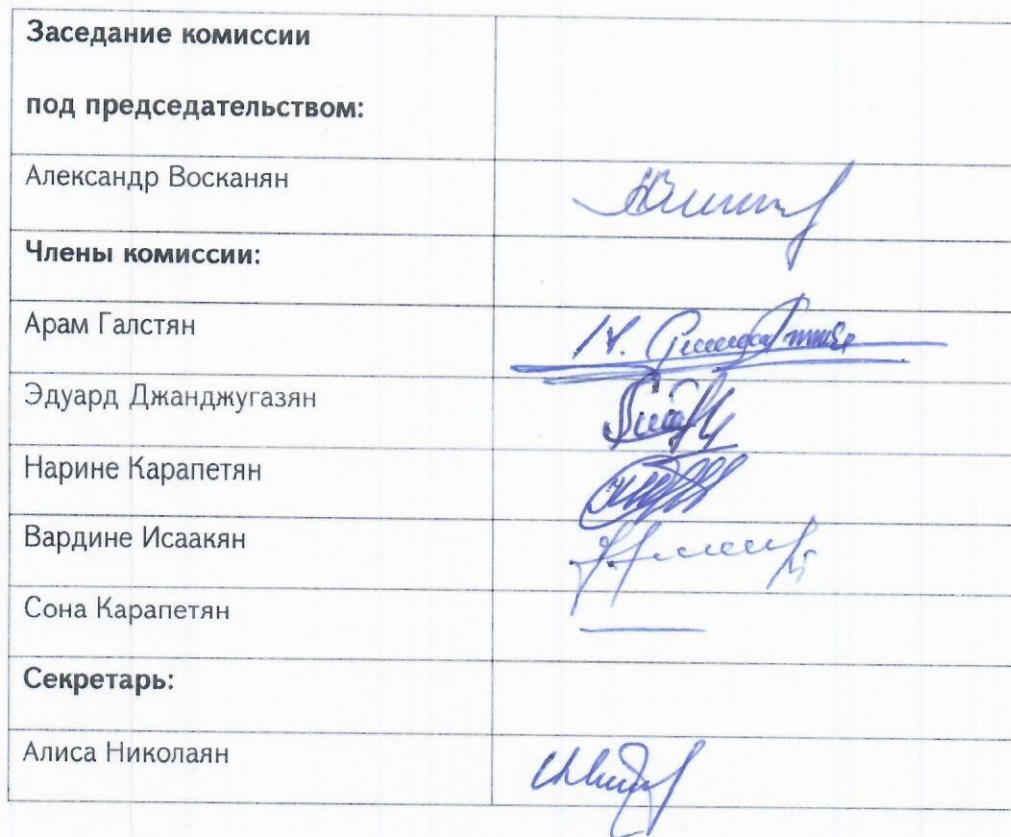 Заседание комиссии
под председательством:
Александр Восканян
Члены комиссии:
Арам Галстян
Эдуард Джанджугазян
Нарине Карапетян
Вардине Исаакян
Сона Карапетян
Секретарь:
Алиса Николаян